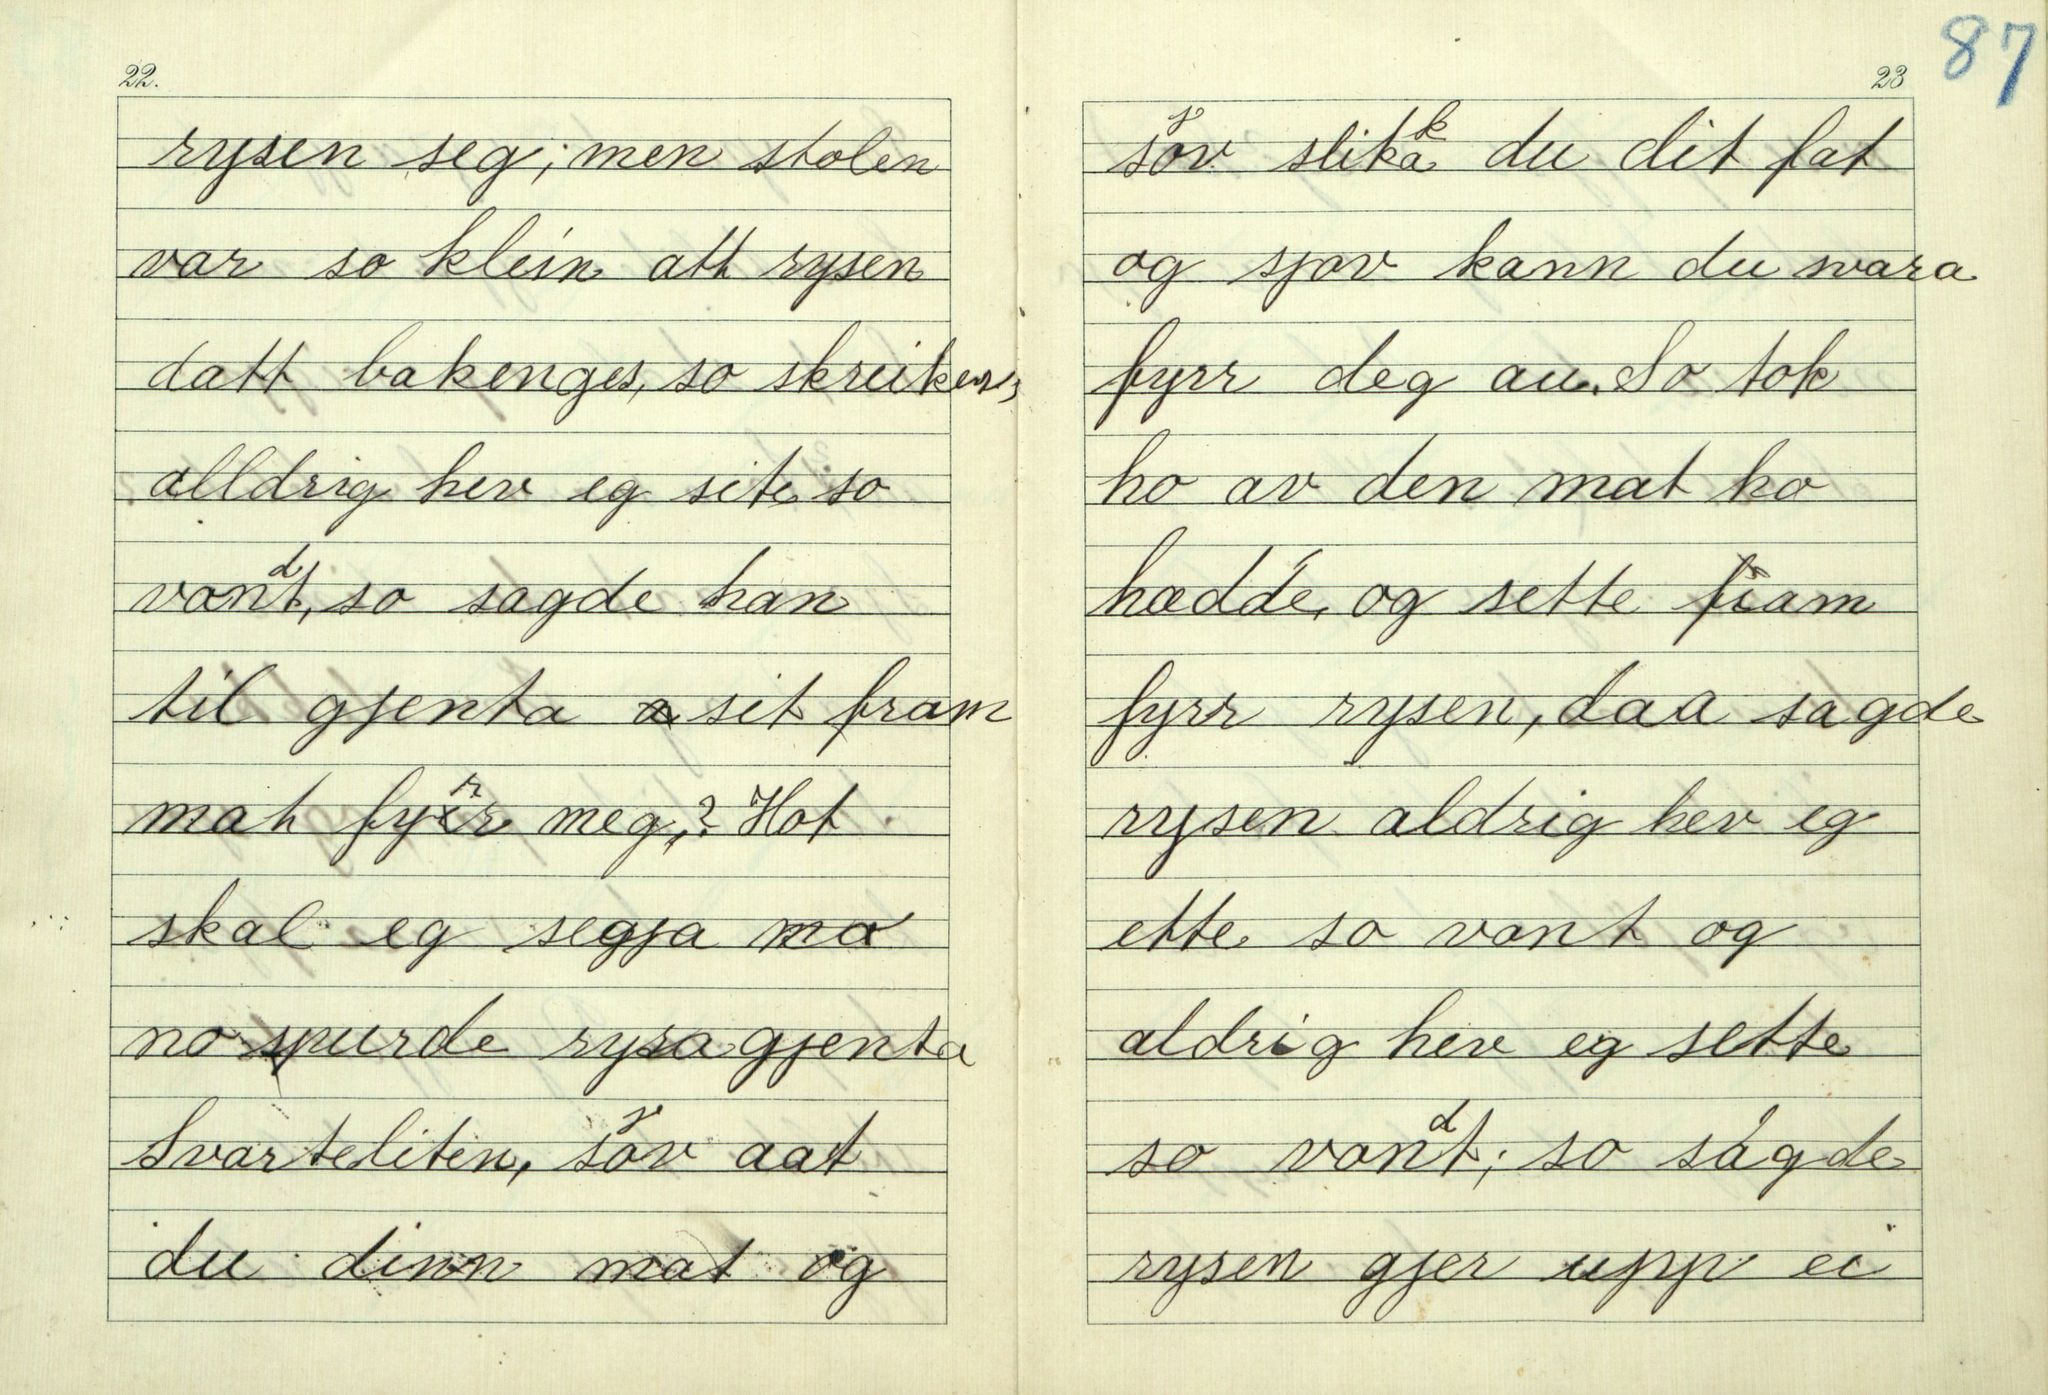 22.
rysen seg; men stolen
var so klein att rysen
datt bakenges, so skreik en,
alldrig hev eg site so
vondt, so sagde han
til gjenta sit fram
mat fyrr meg,? Hot
skal eg segja
no spurde rysagjenta
Svarteliten, sjov aat
du dinn mat og
87
23
sjov slikka du dit fat
og sjov kann du svara
fyrr deg au. So tok
ho av den mat ho
hædde, og sette fram
fyrr rysen, daa sagde
rysen aldrig hev eg
ette so vont og
aldrig hev eg sette
so vondt; so sagde
rysen gjer upp ei